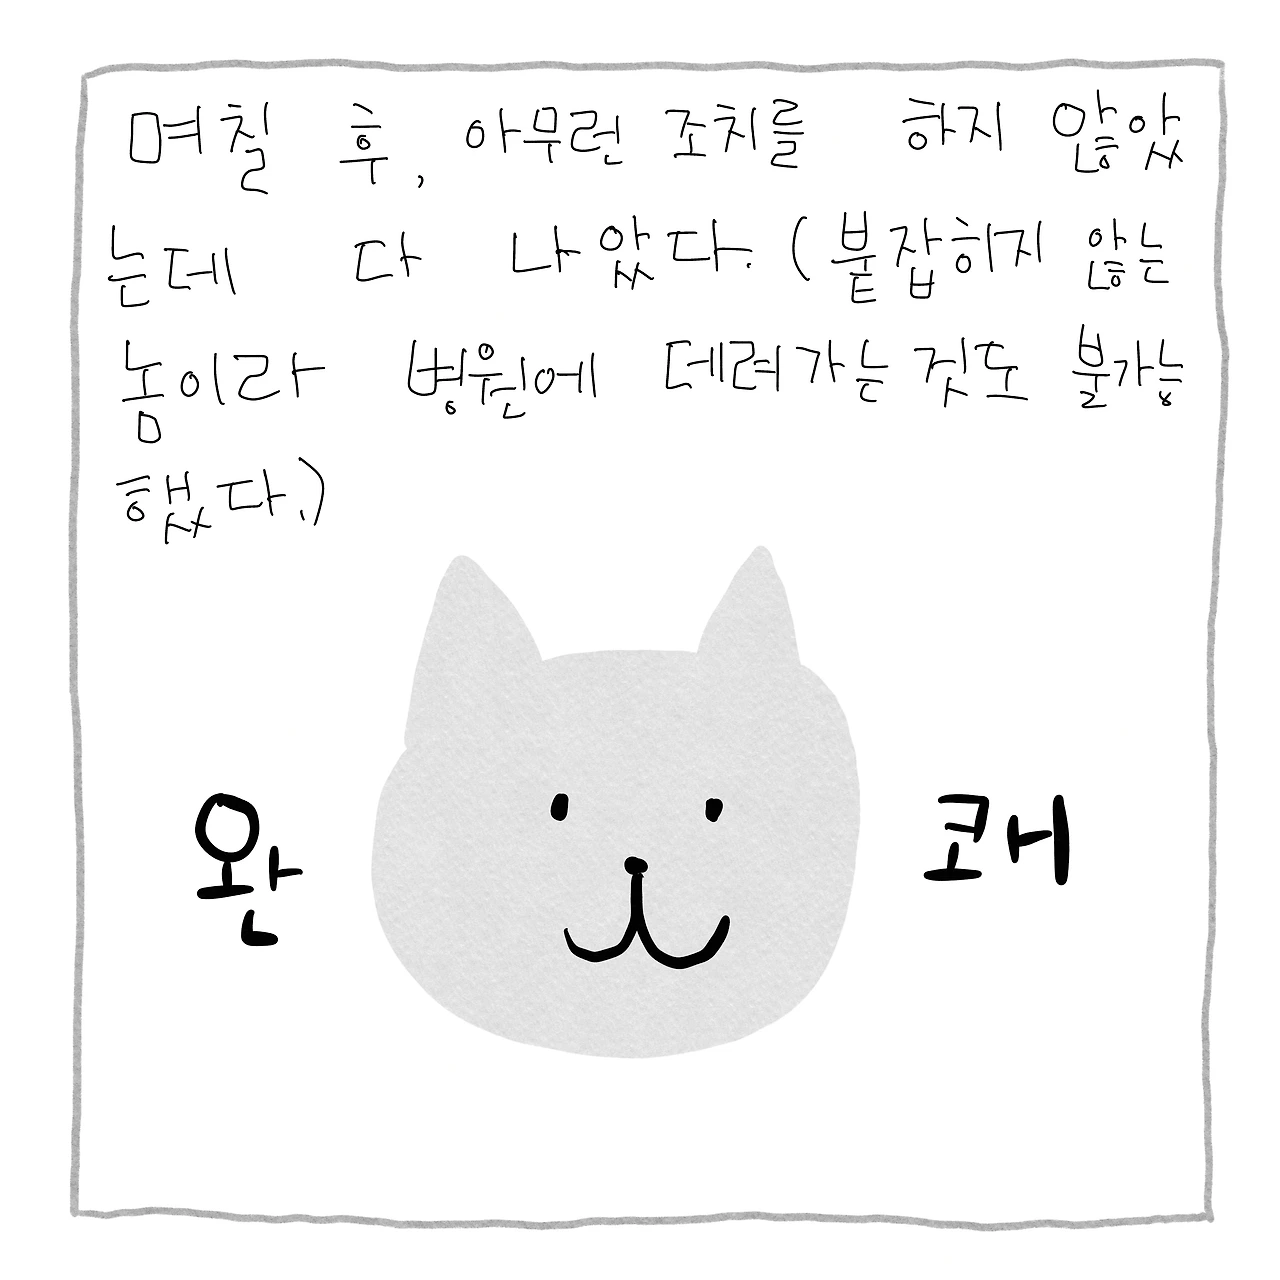 며칠 후, 아무런 조치를 하지 않았
는데 다 나았다. (붙잡히지 않는
놈이라 병원에 데려가는 것도 불가능
했다.)
완 쾌